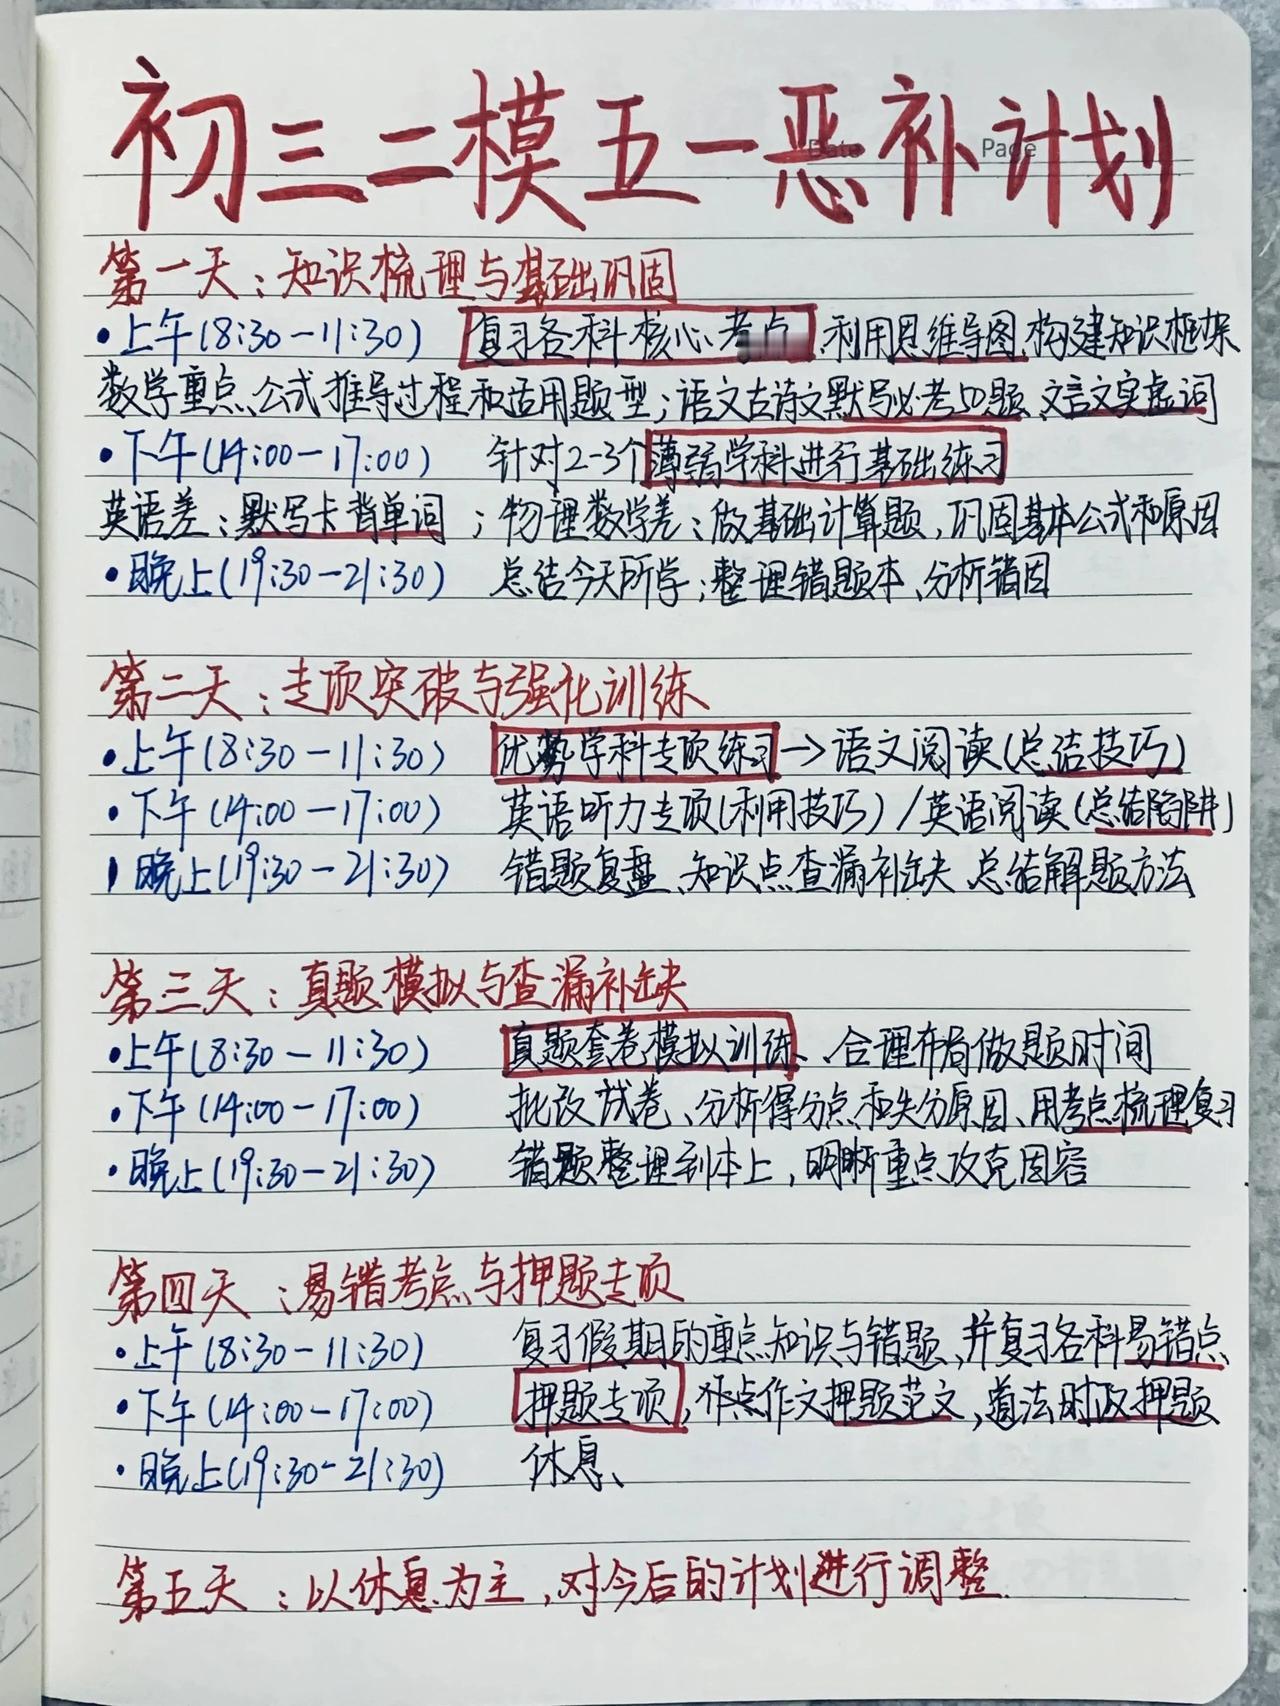 初三二模五一恶补计划
Date Page
第一天：知识梳理与基础巩固
•上午(8:30-11:30) 复习各科核心考点、利用思维导图构建知识框架
数学重点公式推导过程和适用题型；语文古诗文默写必考50题、文言文实虚词
•下午(14:00-17:00) 针对2-3个薄弱学科进行基础练习
英语差：默写卡背单词；物理数学差：做基础计算题，巩固基本公式和原因
•晚上(19:30-21:30) 总结今天所学；整理错题本、分析错因
第二天：专项突破与强化训练
•上午(8:30-11:30) 优势学科专项练习→语文阅读(总结技巧)
•下午(14:00-17:00) 英语听力专项(利用技巧)/英语阅读(总结陷阱)
晚上(19:30-21:30) 错题复盘、知识点查漏补缺 总结解题方法
第三天：真题模拟与查漏补缺
•上午(8:30-11:30) 真题套卷模拟训练、合理布局做题时间
•下午(14:00-17:00) 批改试卷、分析得分点和失分原因、用考点梳理复习
•晚上(19:30-21:30) 错题整理到本上，明晰重点攻克内容
第四天：易错考点与押题专项
•上午(8:30-11:30) 复习假期的重点知识与错题、并复习各科易错点
•下午(14:00-17:00) 押题专项，作文押题范文，道法时政押题
•晚上(19:30-21:30) 休息、
第五天：以休息为主，对今后的计划进行调整